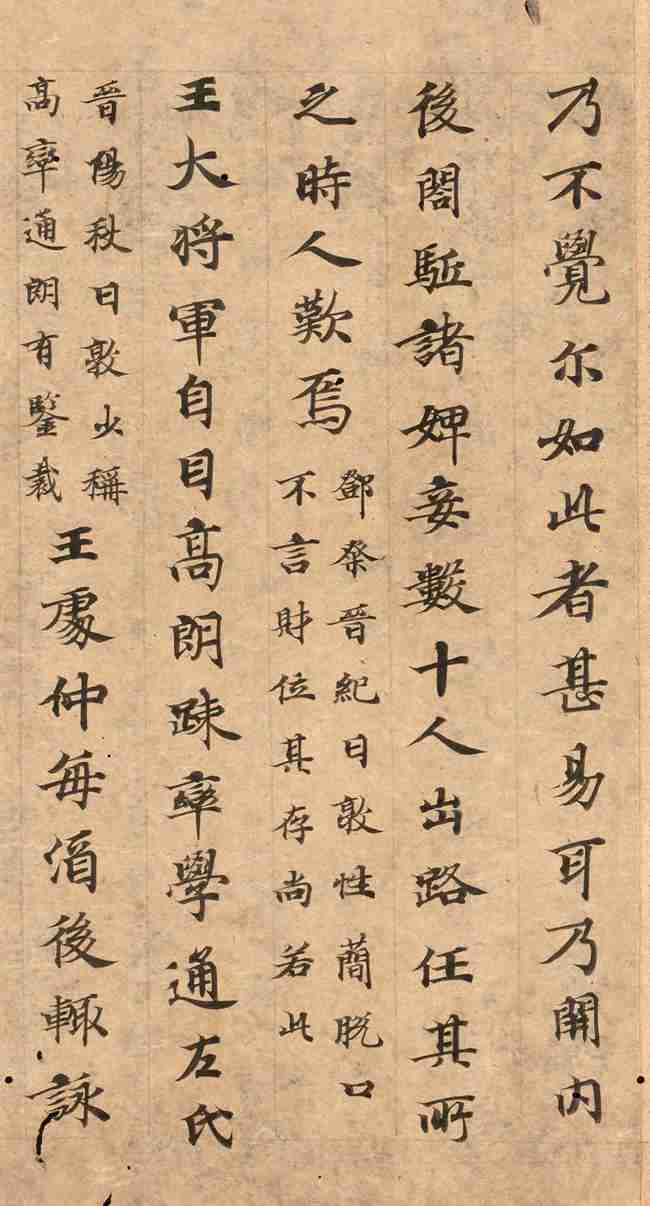 乃不覺尓如此者甚易耳乃開内
後閤駈諸婢妾數十人出路任其所
之時人歎焉
鄧粲晉紀曰敦性蕳脫口
不言財位其存尚若此
王大将軍自目高朗踈率學通左氏
晉陽秋曰敦少稱
高率通朗有鑒裁
王處仲每酒後輙詠